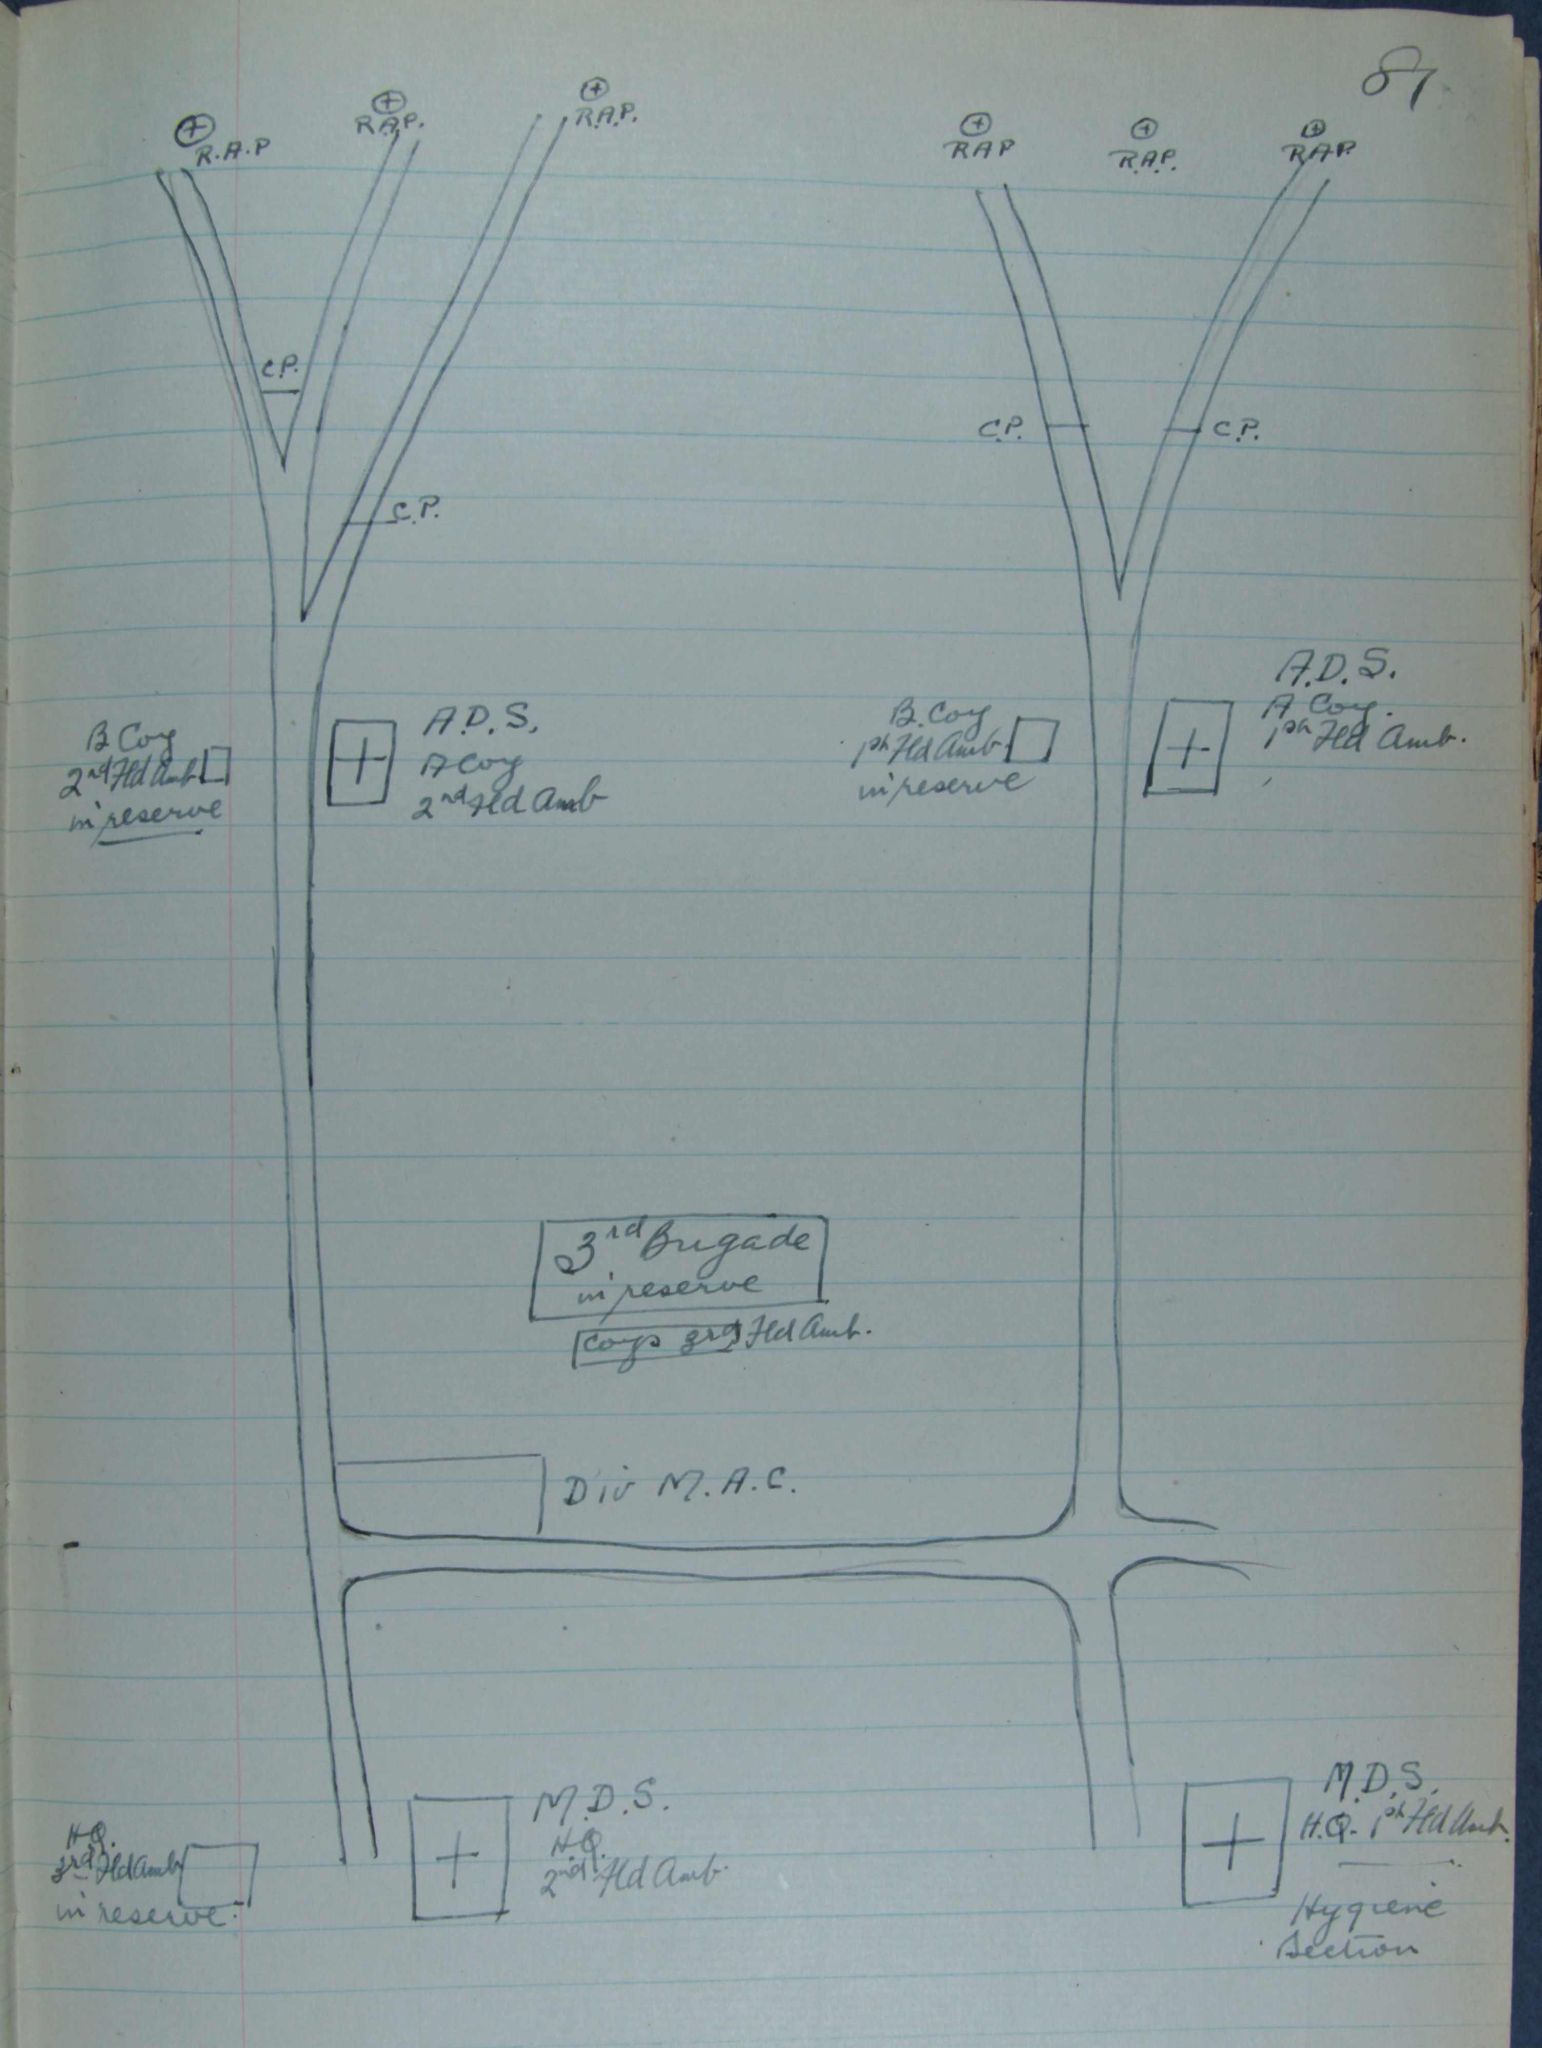 87
R.A.P
R.A.P.
R.A.P.
RAP
R.A.P.
R.A.P.
C.P.
C.P.
C.P.
C.P.
B Coy
2nd Fld Amb
in reserve
A.D.S.
A Coy
2nd Fld Amb
B. Coy
1st Fld Amb.
in reserve
A.D.S.
A Coy.
1st Fld Amb.
3rd Brigade
in reserve
Coys 3rd Fld Amb.
Div M.A.C.
H.Q.
3rd Fld Amb
in reserve.
M.D.S.
H.Q.
2nd Fld Amb.
M.D.S.
H.Q. 1st Fld Amb.
Hygiene
Section